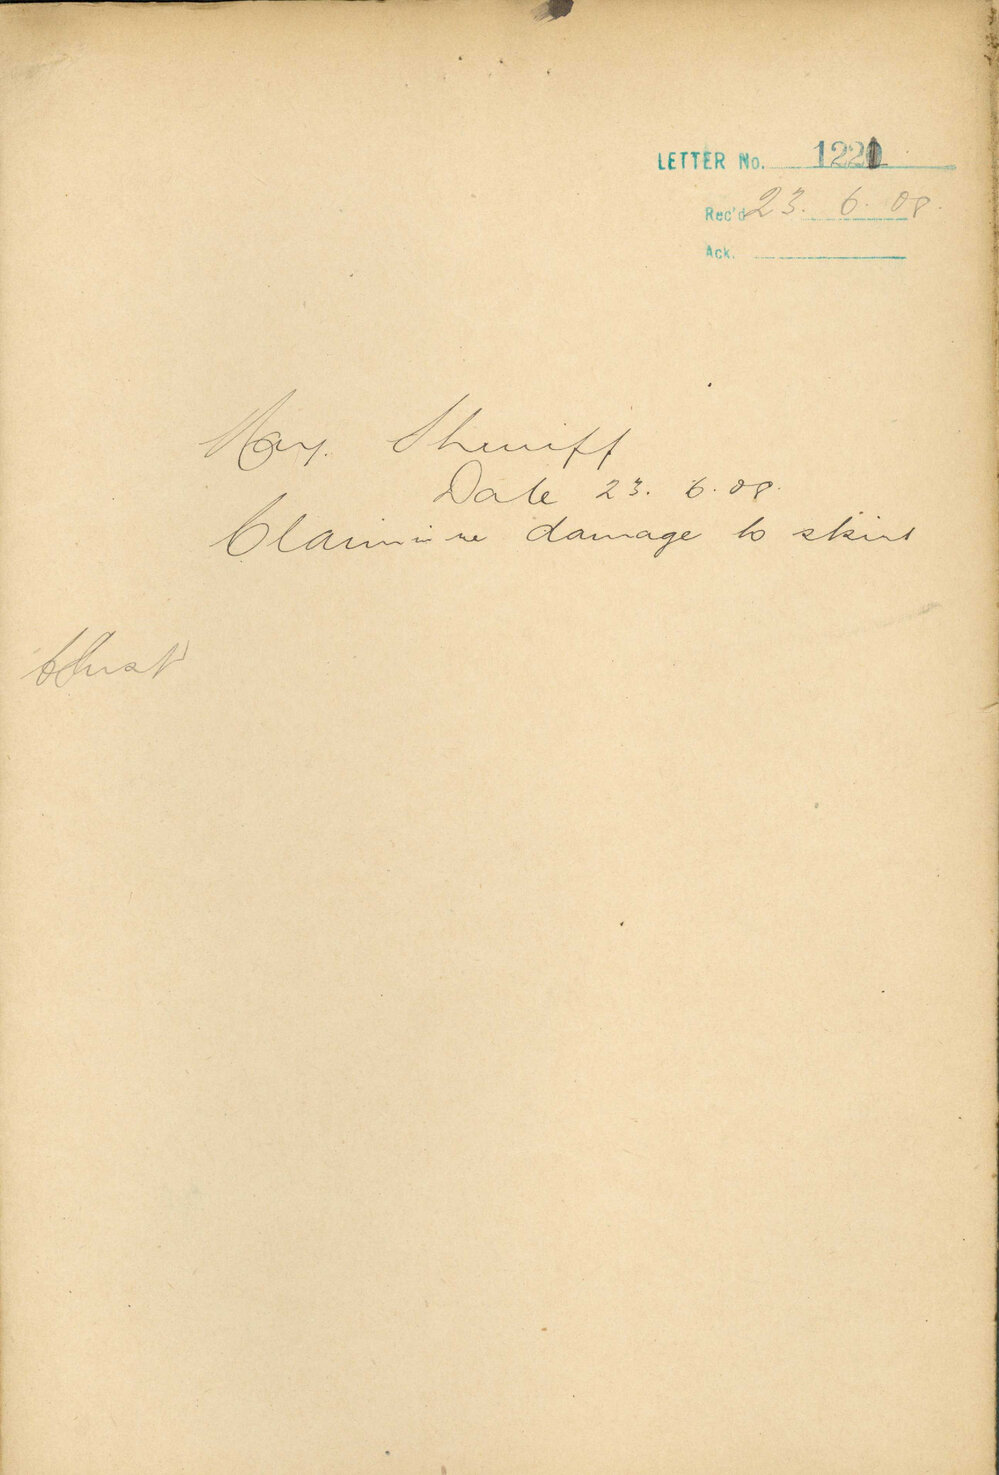 LETTER No. 1221
Rec'd 23. 6. 08.
Ack.
May. Sherriff
Date 23. 6. 08.
Claim in re damage to skirt